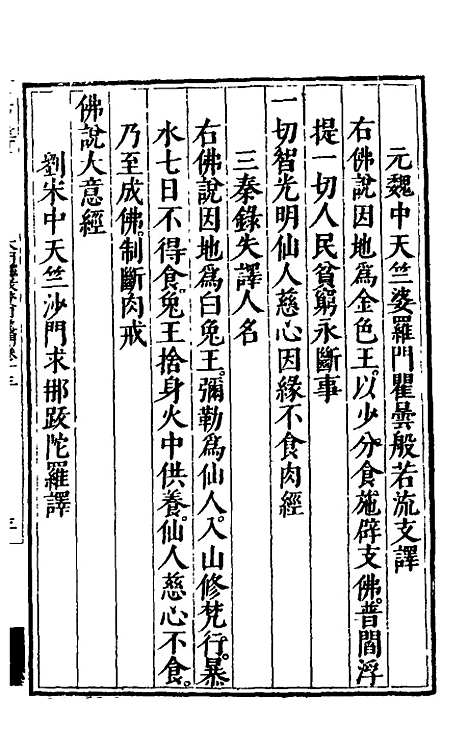 元魏中天竺婆羅門瞿曇般若流支譯
右佛說因地爲金色王。以少分食施辟支佛。普閻浮
提一切人民貧窮永斷事
一切智光明仙人慈心因緣不食肉經
三秦錄失譯人名
右佛說因地爲白兔王。彌勒爲仙人。入山修梵行。暴
水七日不得食。兔王捨身火中供養。仙人慈心不食。
乃至成佛。制斷肉戒
佛說大意經
劉宋中天竺沙門求挪跋陀羅譯